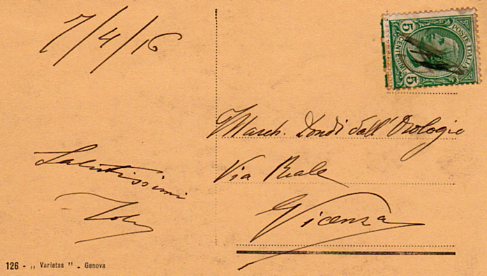 7/4/16
POSTE ITALIANE
5 5
March. Dondi dall'Orologio
Via Reale
Vicenza
Salutissimi
126 - „ Varietas " - Genova